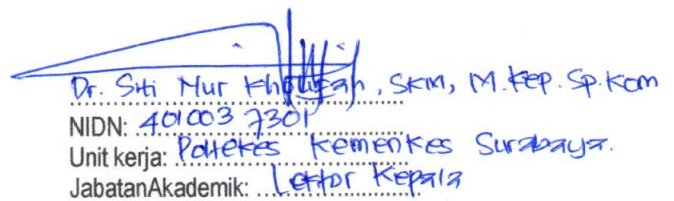 Dr. Siti Nur Kholifah, SKM, M.Kep. Sp.Kom
NIDN: 4010037301
Unit kerja: Poltekes Kemenkes Surabaya.
JabatanAkademik: Lektor Kepala